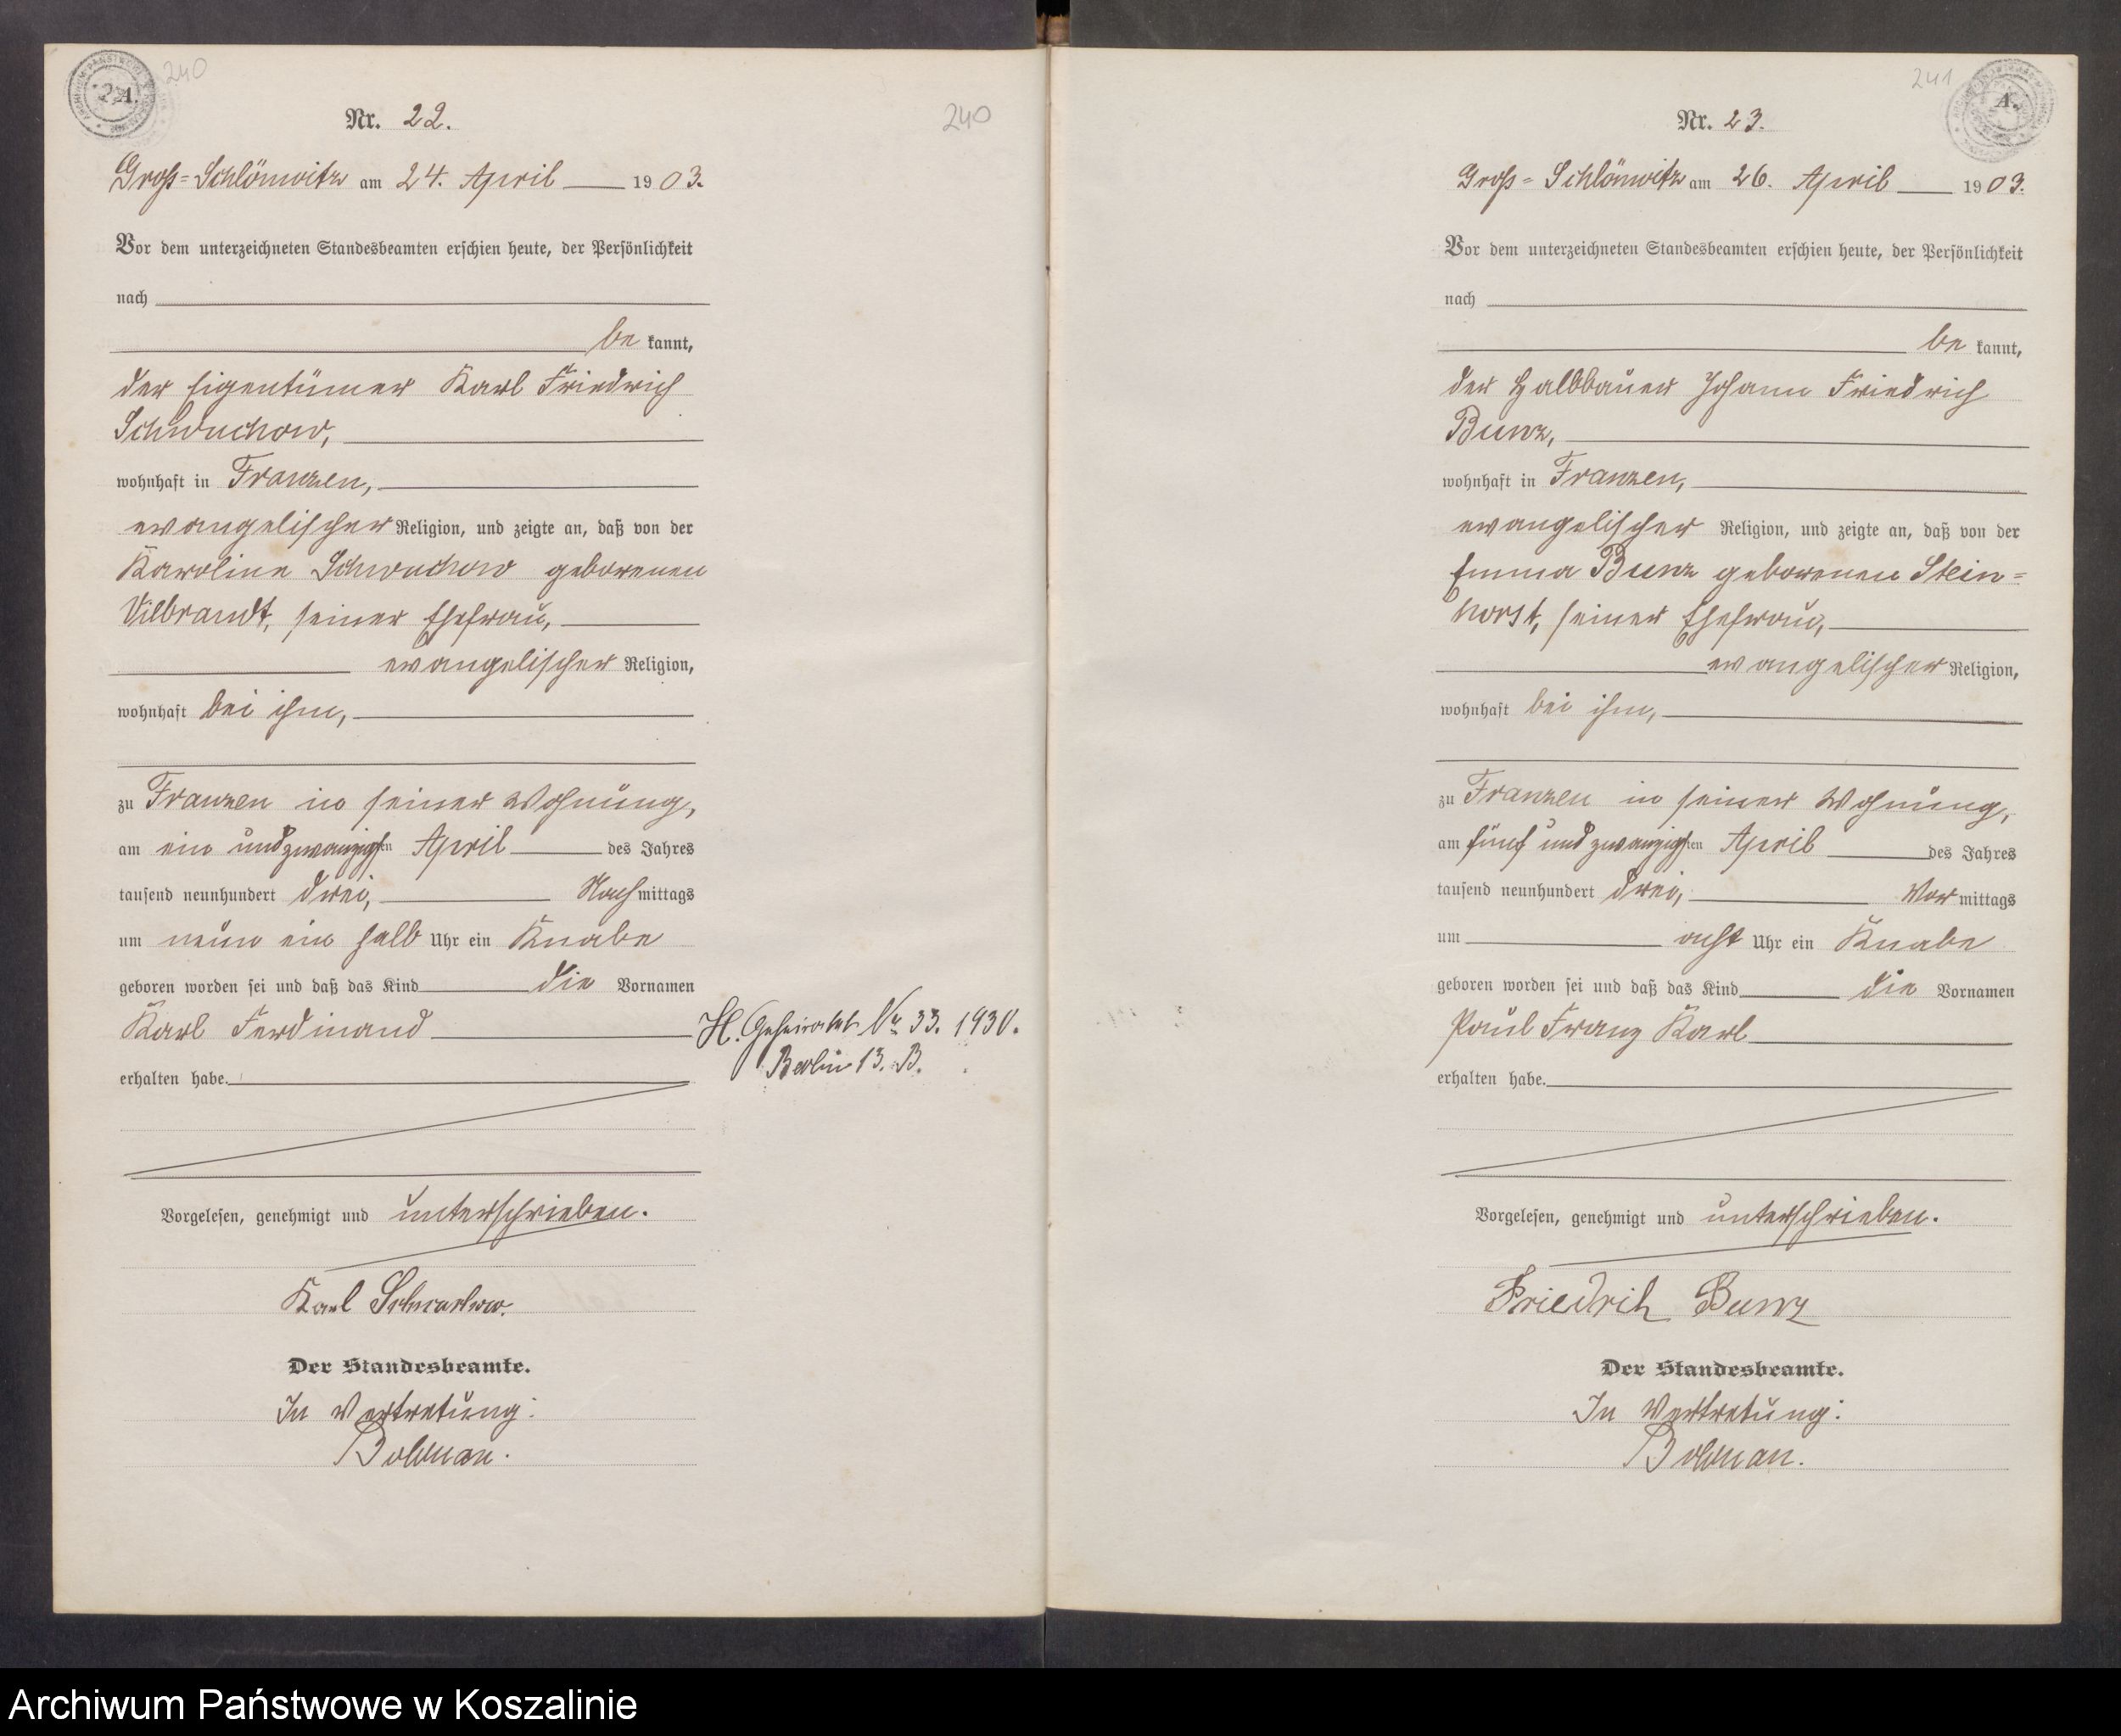 A.
240
Nr. 22.
240
Groß=Schlönwitz am 24. April 1903.
Vor dem unterzeichneten Standesbeamten erschien heute, der Persönlichkeit
nach
be kannt,
der Eigentümer Karl Friedrich
Schwuchow,
wohnhaft in Franzen,
evangelischer Religion, und zeigte an, daß von der
Karoline Schwuchow geborenen
Vilbrandt, seiner Ehefrau,
evangelischer Religion,
wohnhaft bei ihm,
zu Franzen in seiner Wohnung,
am ein und zwanzigsten April des Jahres
tausend neunhundert drei, Nachmittags
um neun ein halb Uhr ein Knabe
geboren worden sei und daß das Kind die Vornamen
Karl Ferdinand
H. Geheiratet Nr 33. 1930.
Berlin 13. B.
erhalten habe.
Vorgelesen, genehmigt und unterschrieben.
Karl Schwuchow.
Der Standesbeamte.
In Vertretung:
241
A.
Nr. 23.
Groß=Schlönwitz am 26. April 1903.
Vor dem unterzeichneten Standesbeamten erschien heute, der Persönlichkeit
nach
be kannt,
der Halbbauer Johann Friedrich
Bunz,
wohnhaft in Franzen,
evangelischer Religion, und zeigte an, daß von der
Emma Bunz geborenen Stein=
horst, seiner Ehefrau,
evangelischer Religion,
wohnhaft bei ihm,
zu Franzen in seiner Wohnung,
am fünf und zwanzigsten April des Jahres
tausend neunhundert drei, Vormittags
um acht Uhr ein Knabe
geboren worden sei und daß das Kind die Vornamen
Paul Franz Karl
erhalten habe.
Vorgelesen, genehmigt und unterschrieben.
Friedrich Bunz
Der Standesbeamte.
In Vertretung:
Archiwum Państwowe w Koszalinie